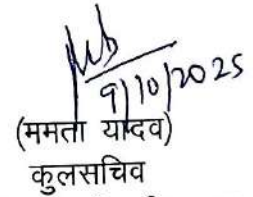 9/10/2025
(ममता यादव)
कुलसचिव